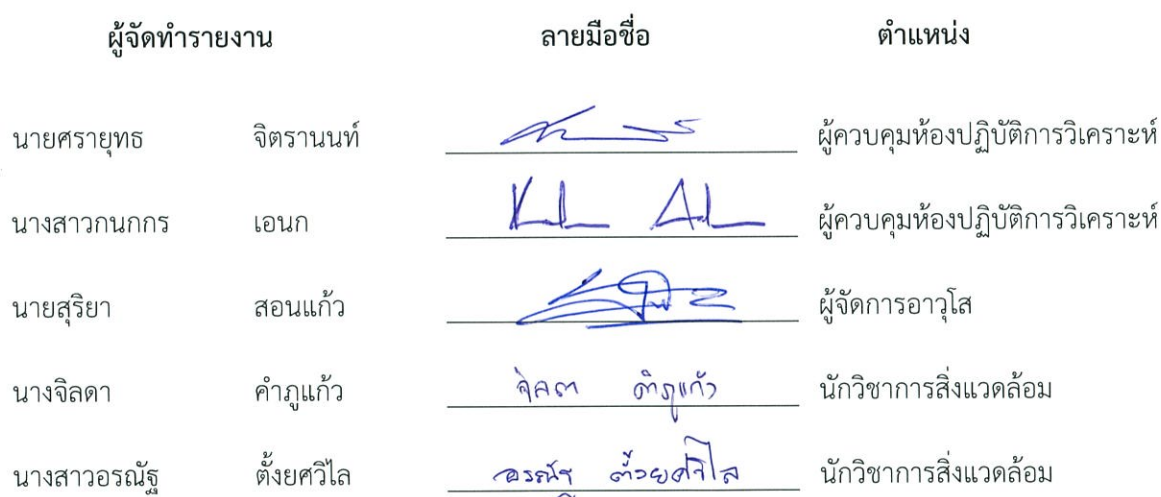 ผู้จัดทำรายงาน ลายมือชื่อ ตำแหน่ง
นายศรายุทธ จิตรานนท์ ผู้ควบคุมห้องปฏิบัติการวิเคราะห์
นางสาวกนกกร เอนก ผู้ควบคุมห้องปฏิบัติการวิเคราะห์
นายสุริยา สอนแก้ว ผู้จัดการอาวุโส
นางจิลดา คำภูแก้ว จิลดา คำภูแก้ว นักวิชาการสิ่งแวดล้อม
นางสาวอรณัฐ ตั้งยศวิไล อรณัฐ ตั้งยศวิไล นักวิชาการสิ่งแวดล้อม